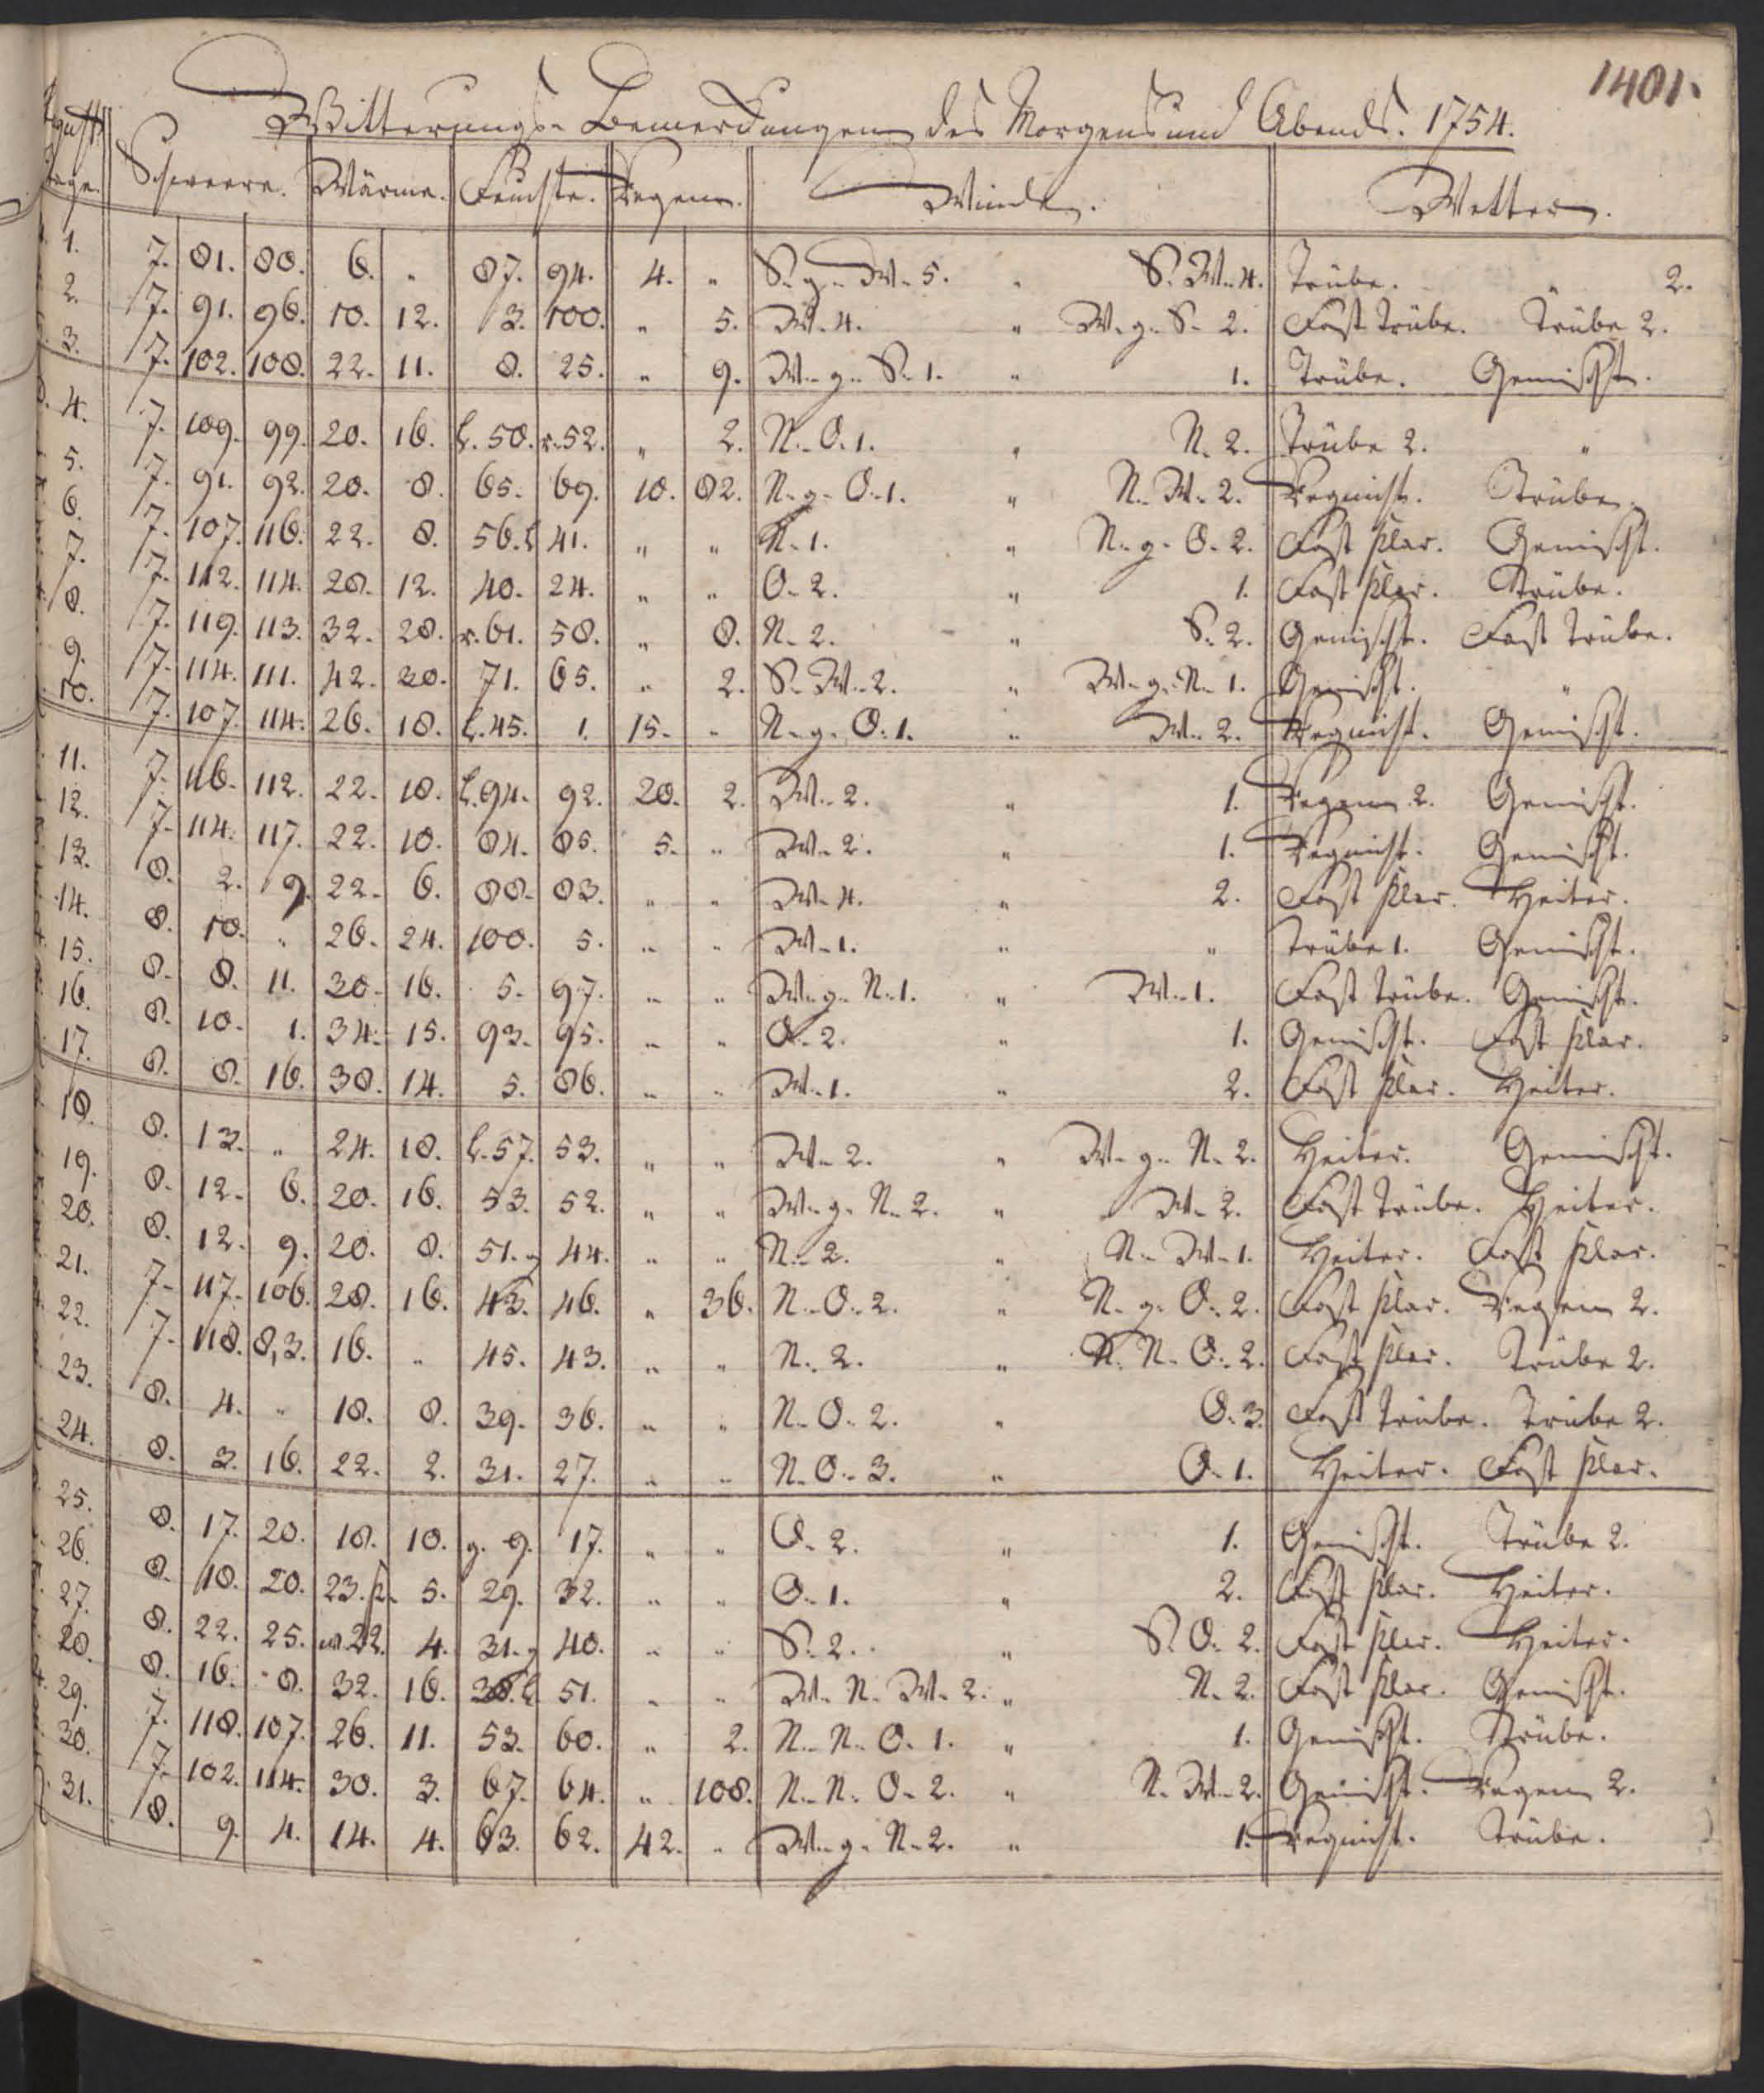 1401.
Witterungs-Bemerckungen des Morgens und Abends. 1754.
Tage. Schweere. Wärme. Feuchte. Regen. Winde. Wetter.
1. 7. 81. 80. 6. " 87. 94. 4. " S. g. W. 5. " S. W. 4. Trübe. " 2.
2. 7. 91. 96. 10. 12. 3. 100. " 5. W. 4. " W. g. S. 2. Fast Trübe. Trübe 2.
3. 7. 102. 108. 22. 11. 8. 25. " 9. W. g. S. 1. " 1. Trübe. Gemischt.
4. 7. 109. 99. 20. 16. l. 58. r. 52. " 2. N. O. 1. " N. 2. Trübe 2. "
5. 7. 91. 92. 20. 8. 65. 69. 10. 82. N. g. O. 1. " N. W. 2. Regnicht. Trübe.
6. 7. 107. 116. 22. 8. 56. l 41. " " N. 1. " N. g. O. 2. Fast klar. Gemischt.
7. 7. 112. 114. 28. 12. 40. 24. " " O. 2. " 1. Fast klar. Trübe.
8. 7. 119. 113. 32. 28. r. 61. 58. " 8. N. 2. " S. 2. Gemischt. Fast Trübe.
9. 7. 114. 111. 42. 30. 71. 65. " 2. S. W. 2. " W. g. N. 1. Gemischt. "
10. 7. 107. 114. 26. 18. l. 45. 1. 15. " N. g. O. 1. " W. 2. Regnicht. Gemischt.
11. 7. 116. 112. 22. 18. l. 94. 92. 28. 2. W. 2. " 1. Regen 2. Gemischt.
12. 7. 114. 117. 22. 10. 84. 85. 5. " W. 2. " 1. Regnicht. Gemischt.
13. 8. 2. 9. 22. 6. 88. 83. " " W. 4. " 2. Fast klar. Heiter.
14. 8. 10. " 26. 24. 100. 5. " " W. 1. " " Trübe 1. Gemischt.
15. 8. 8. 11. 30. 16. 5. 97. " " W. g. N. 1. " W. 1. Fast Trübe. Gemischt.
16. 8. 10. 1. 34. 15. 93. 95. " " O. 2. " 1. Gemischt. Fast klar.
17. 8. 8. 16. 38. 14. 5. 86. " " W. 1. " 2. Fast klar. Heiter.
18. 8. 13. " 24. 18. l. 57. 53. " " W. 2. " W. g. N. 2. Heiter. Gemischt.
19. 8. 12. 6. 20. 16. 53. 52. " " W. g. N. 2. " W. 2. Fast Trübe. Heiter.
20. 8. 12. 9. 20. 8. 51. g 44. " " N. 2. " N. W. 1. Heiter. Fast klar.
21. 7. 117. 106. 28. 16. 43. 46. " 36. N. O. 2. " N. g. O. 2. Fast klar. Regen 2.
22. 7. 118. 8,3. 16. " 45. 43. " " N. 2. " N. N. O. 2. Fast klar. Trübe 2.
23. 8. 4. " 18. 8. 39. 36. " " N. O. 2. " O. 3. Fast Trübe. Trübe 2.
24. 8. 3. 16. 22. 2. 31. 27. " " N. O. 3. " O. 1. Heiter. Fast klar.
25. 8. 17. 20. 18. 10. g. 9. 17. " " O. 2. " 1. Gemischt. Trübe 2.
26. 8. 18. 20. 23. k. 5. 29. 32. " " O. 1. " 2. Fast klar. Heiter.
27. 8. 22. 25. w. 22. 4. 31. g 40. " " S. 2. " S. O. 2. Fast klar. Heiter.
28. 8. 16. 8. 32. 16. 38. l. 51. " " W. N. W. 2. " N. 2. Fast klar. Gemischt.
29. 7. 118. 107. 26. 11. 53. 60. " 2. N. N. O. 1. " 1. Gemischt. Trübe.
30. 7. 102. 114. 30. 3. 67. 64. " 108. N. N. O. 2. " N. W. 2. Gemischt. Regen 2.
31. 8. 9. 4. 14. 4. 63. 62. 42. " W. g. N. 2. " 1. Regnicht. Trübe.